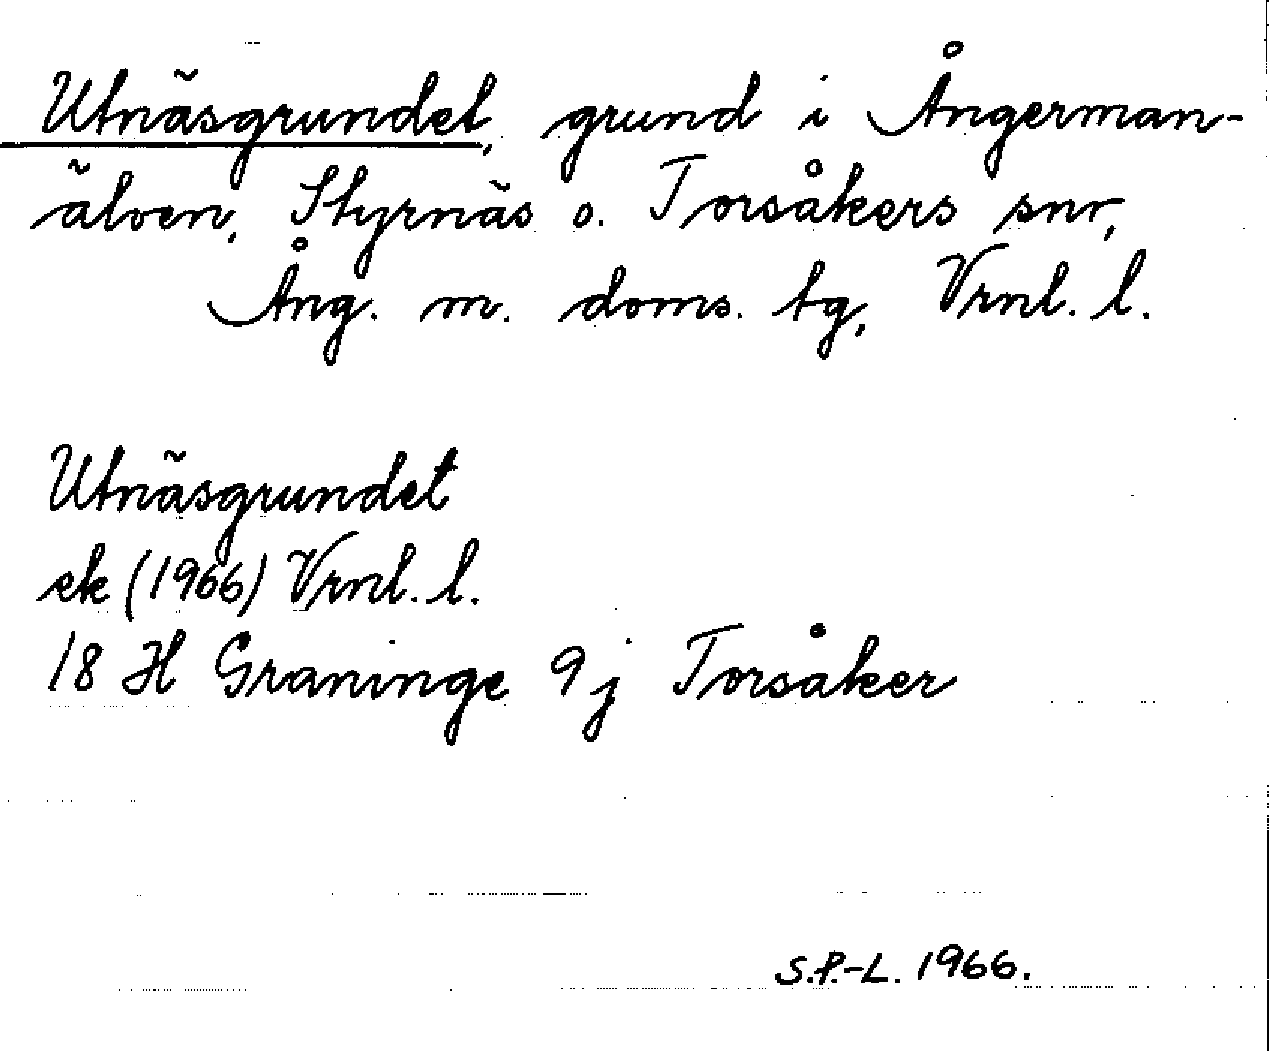 Utnäsgrundet, grund i Ångerman-
älven, Styrnäs o. Torsåkers snr,
Ång. m. doms. tg, Vrnl. l.
Utnäsgrundet
ek (1966) Vrnl. l.
18 H Graninge 9 j Torsåker
S.P.-L. 1966.